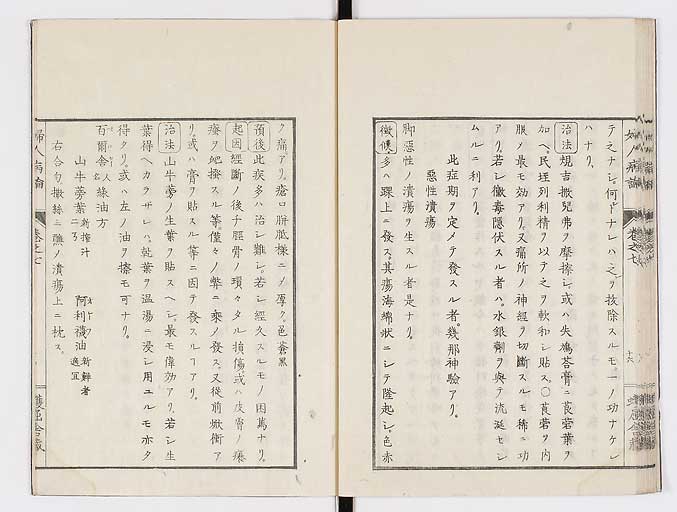 テ之ナシ何トナレハ之ヲ抜除スルモ一ノ功ナケレ
ハナリ
治法 規吉撒兒弗ヲ摩擦シ或ハ失鳩荅膏ニ莨菪葉ヲ
加ヘ民垤列利精ヲ以テ之ヲ軟和シ貼ス〇莨菪ヲ内
服ノ最モ効アリ又痛所ノ神經ヲ切斷スルモ稀ニ功
アリ若シ黴毒隱伏スル者ハ水銀劑ヲ與テ流涎セシ
ムルニ利アリ
此症期ヲ定メテ發スル者幾那神驗アリ
惡性潰瘍
脚惡性ノ潰瘍ヲ生スル者是ナリ
徴候 多ハ踝上ニ發ス其瘍海綿狀ニシテ隆起シ色赤
婦人病論
卷之七
十六
ク痛アリ瘡口胼胝樣ニノ厚ク色蒼黑
預後 此疾多ハ治シ難シ若シ經久スルモノ困萬ナリ
起因 經斷ノ後チ脛骨ノ瑣々タル損傷或ハ皮膚ノ癢
瘡ヲ爬搔スル等僅々ノ弊ニ乘ノ發ス又從前焮衝ア
リ或ハ膏ヲ貼スル等ニ因テ發スルアリ
治法 山牛蒡ノ生葉ヲ貼スヘシ最モ偉効アリ若シ生
葉得ヘカラサレハ乾葉ヲ温湯ニ浸シ用ユルモ亦タ
得タリ或ハ左ノ油ヲ擦モ可ナリ
百爾舎人名綠油方
山牛蒡葉新搾汁 阿利襪油新鮮者
二 適宜
右合匀撒絲ニ醮ノ潰瘍上ニ枕ス
婦人病論
卷之七